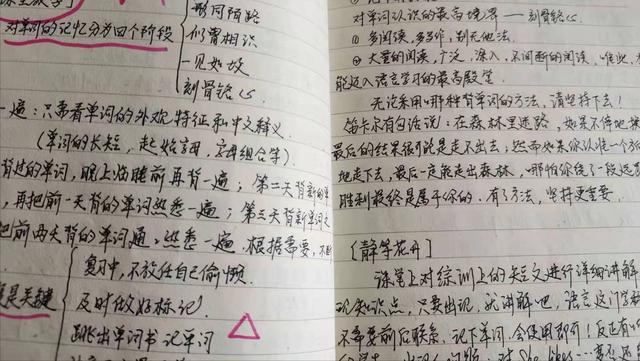 对单词的记忆分为四个阶段
形同陌路
似曾相识
一见如故
刻骨铭心
一遍：只需看单词的外观特征和中文释义
（单词的长短，起始字母，字母组合等）
背过的单词，晚上临睡前再背一遍；第二天背新的单
，再把前一天背的单词熟悉一遍；第三天背新单词之
把前两天背的单词通、熟悉一遍．根据需要，不断
复习中，不放任自己偷懒
是关键
及时做好标记
跳出单词书记单词
对单词认识的最高境界——刻骨铭心
① 多阅读，多写作，别无他法．
② 大量的阅读，广泛，深入，不间断的阅读，唯此，才
能迈入语言学习的最高殿堂
无论采用哪种背单词的方法，请坚持下去！
笛卡尔有句话说：在森林里迷路，如果不停地换
最后的结果很可能是走不出去，然而如果你认准一个
地走下去，最后一定能走出森林，哪怕你绕了一段远
胜利最终是属于你的．有了方法，坚持更重要．
［静等花开］
课堂上对综训上的短文进行详细讲解
说知识点，只要出现，就讲解吧，语言这门学
不需要前后联系，记下单词，会使用即可！反正有